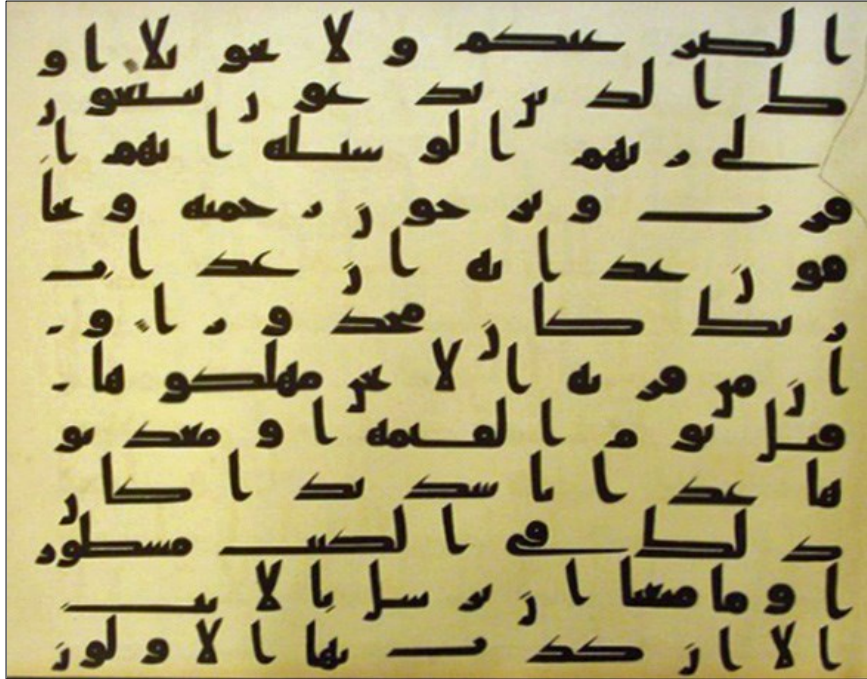 الضر عنكم ولا تحويلا او
لك الذين يدعون يبتغون
لى ربهم الوسيلة ايهم ا
قرب ويرجون رحمته ويخا
فون عذابه ان عذاب
ربك كان محذورا و
ان من قرية الا نحن مهلكوها
قبل يوم القيمة او معذبو
ها عذابا شديدا كان
ذلك في الكتب مسطور
ا وما منعنا ان نرسل بالايت
الا ان كذب بها الاولون